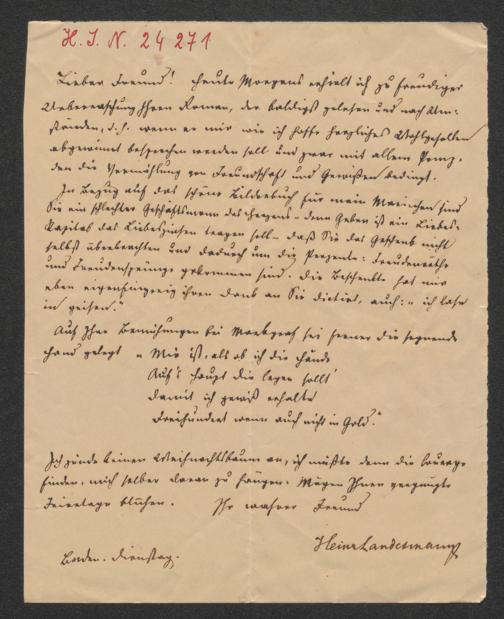 H. I. N. 24271
Lieber Freund! Heute Morgens erhielt ich zu freudiger
Ueberraschung Ihren Roman, der baldigst gelesen und nach Um-
ständen, d. h. wenn er mir wie ich hoffe herzliches Wohlgefallen
abgewinnt besprochen werden soll und zwar mit allem Pomp,
den die Vermählung von Freundschaft und Gewissen bedingt.
In Bezug auf das schöne Bilderbuch für mein Mariechen sind
Sie ein schlechter Geschäftsmann des Herzens – denn Geben ist ein Liebes-
Kapital das Liebeszinsen tragen soll – daß Sie das Geschenk nicht
selbst überbrachten und dadurch um die Perzente: Freudenröthe
und Freudensprünge gekommen sind. Die Beschenkte hat mir
eben ihren Dank an Sie dictirt, auch: "ich lasse
ihn grüßen."
Auf Ihre Bemühungen bei Markgraf sei ferner die segnende
Hand gelegt "Mir ist, als ob ich die Hände
Auf's Haupt dir legen sollt'
damit ich gewiß erhalte
Freihundert wenn auch nicht in Gold."
Ich zünde keinen Weihnachtsbaum an, ich müßte denn die Courage
finden, mich selber daran zu hängen. Mögen Ihnen vergnügte
Feiertage blühen. Ihr wahrer Freund
Heinr Landesmann
Baden. Dienstag.